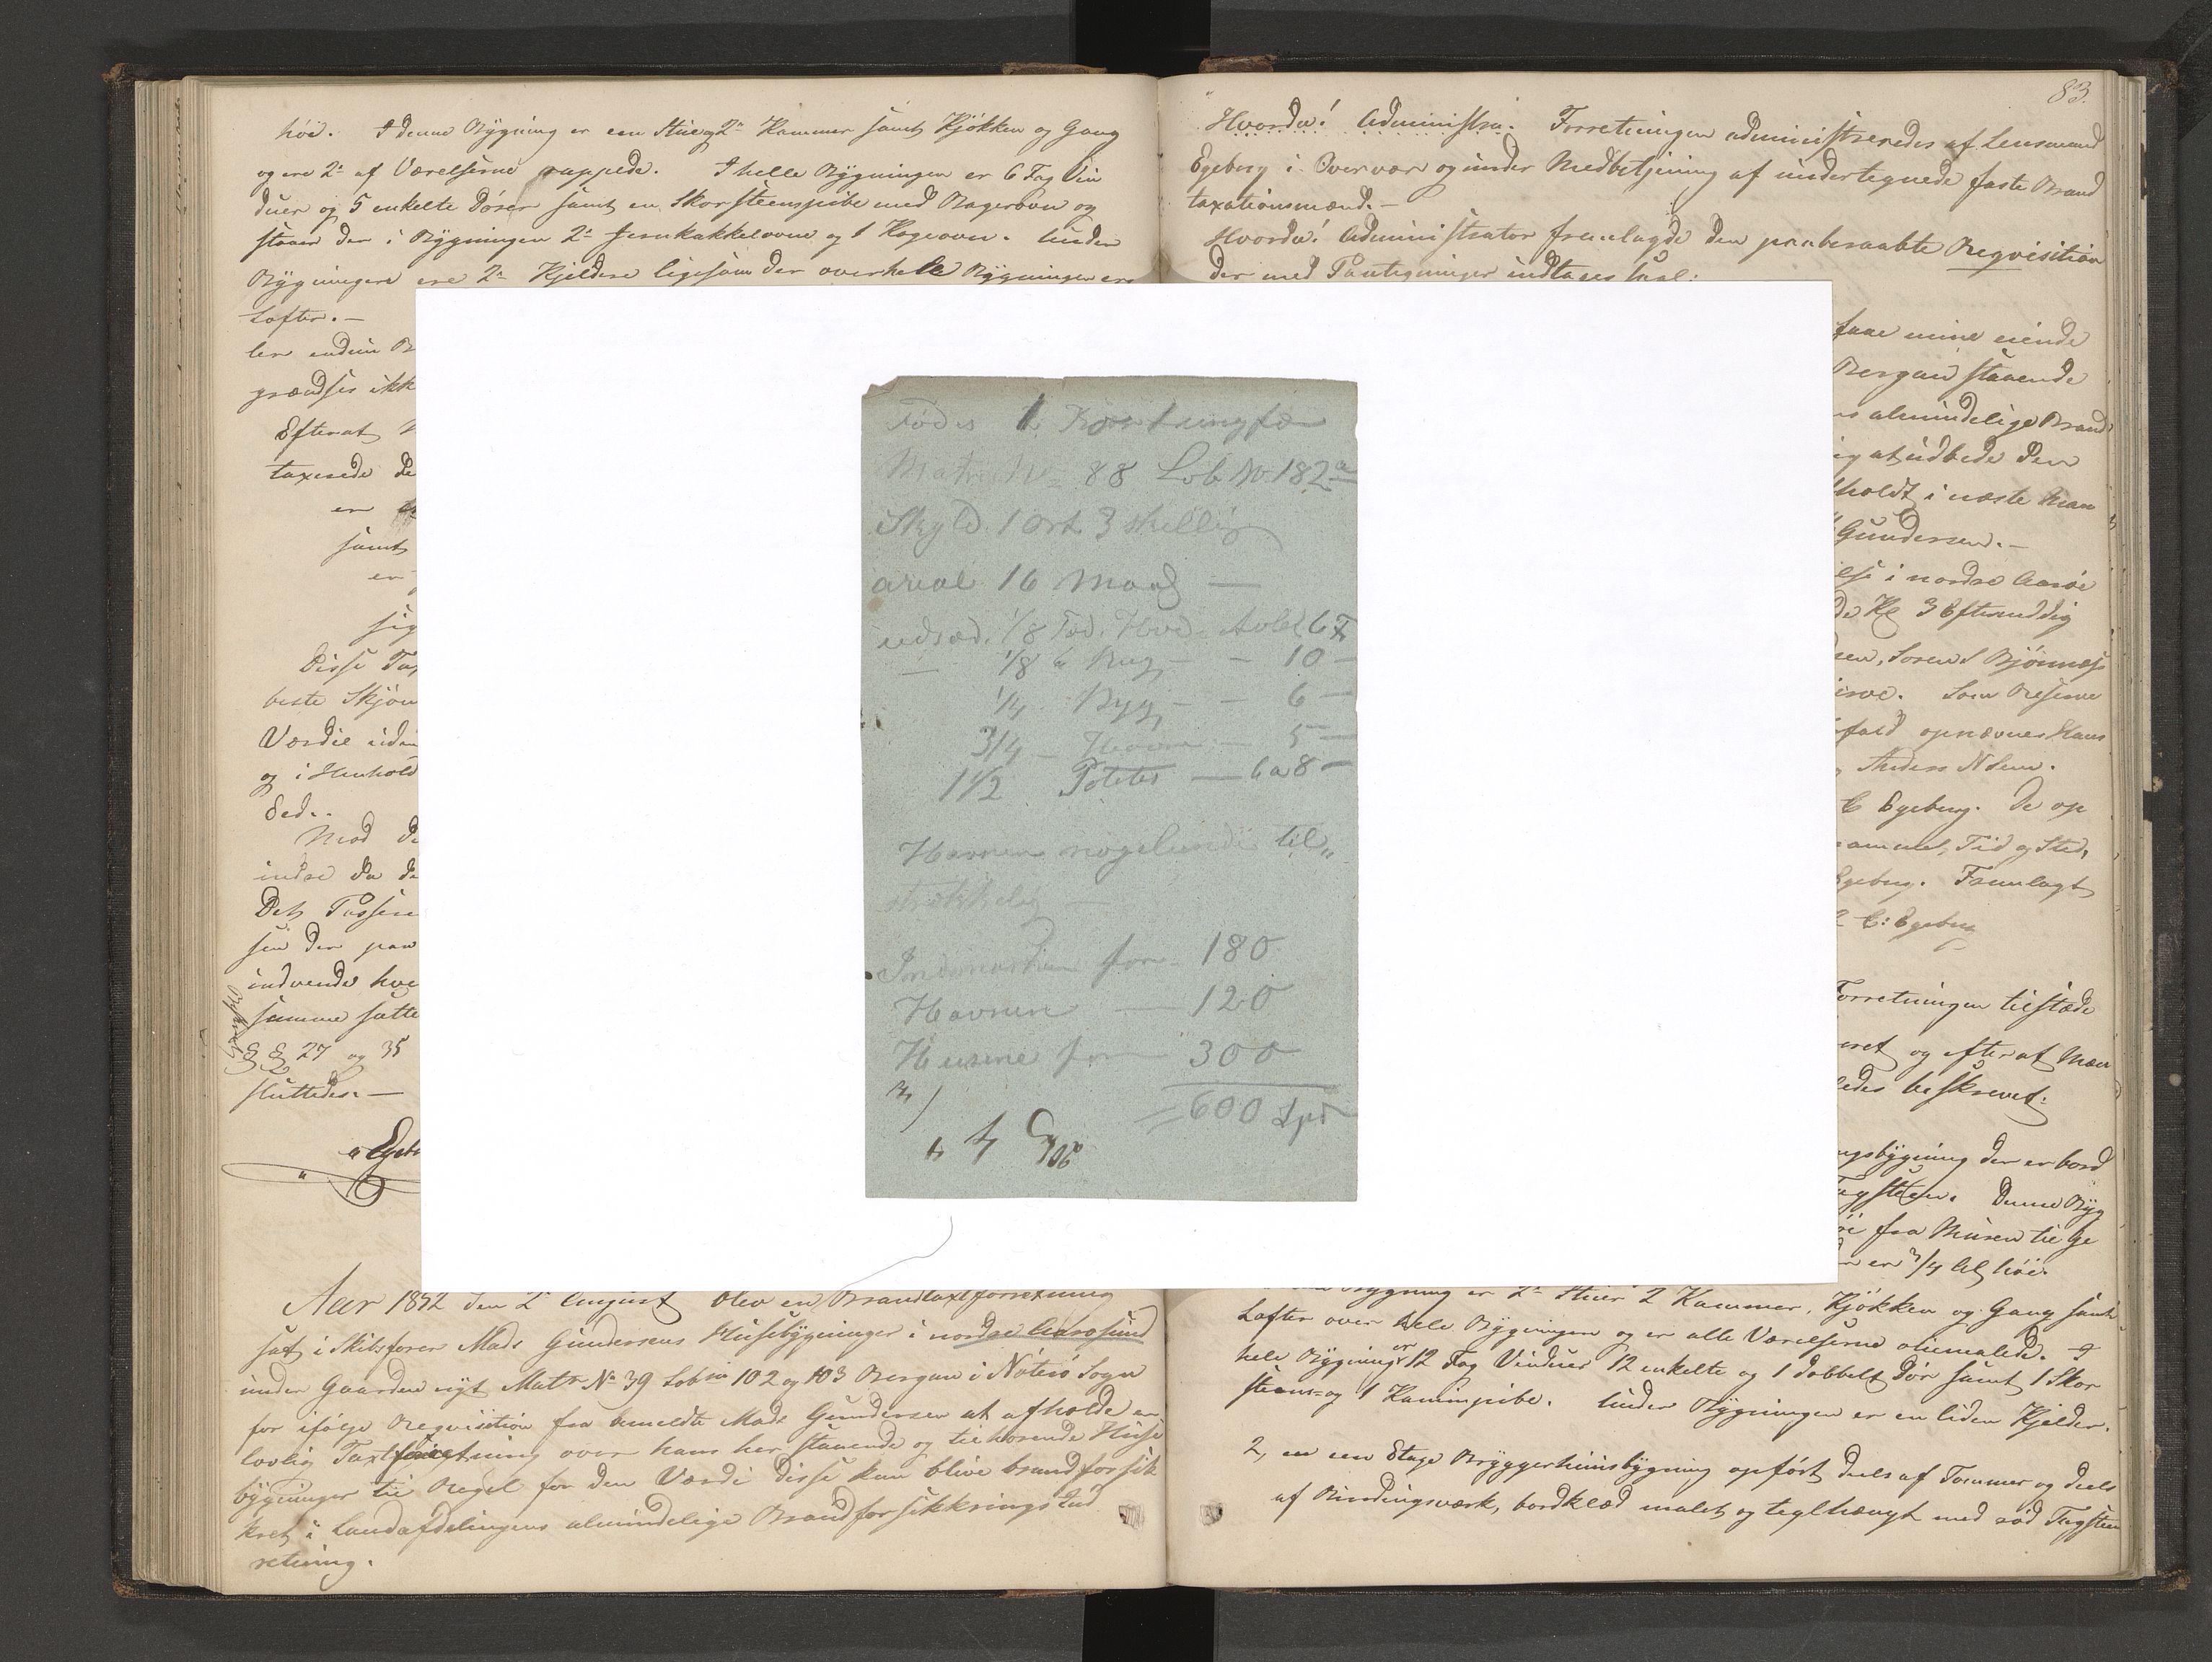 høi. I denne Bygning er een Stue og 2de Kammer samt Kjøkken og Gang
og ere 2de af Værelserne rappede. I hele Bygningen er 6 Fag Vin
duer og 5 enkelte Dører samt en Skorsteenspibe med Bagerovn og
staaer der i Bygningen 2de Jernkakkelovne og 1 Kogeovn. Under
Bygningen ere 2de Kjeldere ligesom der over hele Bygningen ere
Lofter. —
ler endnu B
grændser ikk
Efterat
taxerede de
en
samt
en
sig
Disse Tax
beste Skjøn
Værdie uden
og i Henhold
Eed.
Mod de
indre da de
Dets Passere
sen der paa
indvende hve
samme satte
§§ 27 og 35
sluttedes. —
Egeb
Aar 1852 den 2den August blev en Brandtaxtforretning
sat i Skibsfører Mads Gundersens Huusbygninger i nordre Aarøsund
under Gaarden nyt Matr No 39 Løb No 102 og 103 Bergan i Nøterø Sogn
for ifølge Reqvisition fra anmeldte Mads Gundersen at afholde en
lovlig Taxtforretning over hans her staaende og tilhørende Huus
bygninger til Regel for den Værdi disse kan blive brandforsik
kret i Landafdelingens almindelige Brandforsikkrings Ind
retning.
83.
Hvorda! Administra. Forretningen administreredes af Lensmand
Egeberg i Overvær og under Medbetjening af undertegnede faste Brand
taxationsmænd. —
Hvorda! Administrator fremlagde den paaberaabte Reqvisition
der med Paategninger indtages skal:
faae mine eiende
Bergan staaende
almindelige Brand
ig at udbede den
holdt i næste Maa
Gundersen. —
else i nordre Aarøe
de Kl 3 Eftermiddag
sen, Søren S Bjønnæss
Som Reserve
fald opnævnes Hans
Anders Nilsen.
C Egeberg. De op
sammel, Tid og Sted,
Egeberg. Fremlagt
C: Egeberg
Forretningen tilstæde
eret og efterat Mæn
ledes beskrevet:
ngsbygning der er bord
Tagsteen. Denne Byg
fra Muren til Ge
er 3/4 Al høi.
Bygning er 2de Stuer 2 Kammer, Kjøkken og Gang samt
Lofter over hele Bygningen og er alle Værelserne oliemalede. I
hele Bygningen er 12 Fag Vinduer 12 enkelte og 1 dobbelt Dør samt 1 Skor
steens- og 1 Kaminpibe. Under Bygningen er en liden Kjelder.
2, en een Etage Bryggerhuusbygning opført deels af Tømmer og deels
af Bindingsværk, bordklæd malet og teglhængt med rød Tagsteen
Fødes 1 Koe
Matr No 88 Løb No 182a
Skyld. 1 Ort 3 skelling
areal 16 Maal —
udsæd. 1/8 Tød. Hvede Avled 6 F
— 1/8 " Rug — — 10 —
1/4 Byg — — 6 —
3/4 — Havre — 5 —
1 1/2 Poteter — 6 a 8 —
Havnen nogelunde til„
strækkelig
Indmarken for 180
Havnen — 120
Husene for 300
= 600 Spd